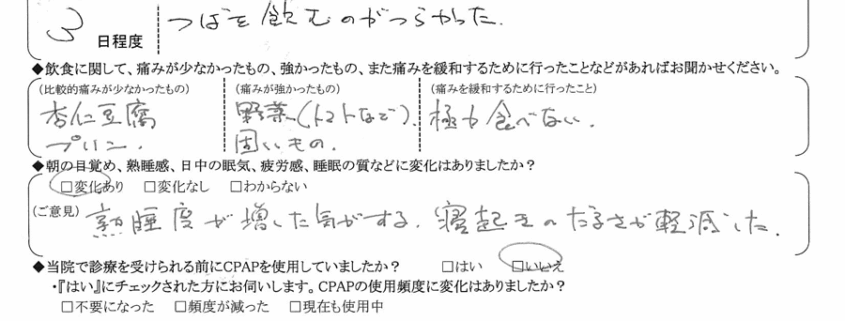 3 日程度 つばを飲むのがつらかった.
◆飲食に関して、痛みが少なかったもの、強かったもの、また痛みを緩和するために行ったことなどがあればお聞かせください。
(比較的痛みが少なかったもの) (痛みが強かったもの) (痛みを緩和するために行ったこと)
杏仁豆腐 野菜(トマトなど). 極力食べない.
プリン. 固いもの.
◆朝の目覚め、熟睡感、日中の眠気、疲労感、睡眠の質などに変化はありましたか?
□変化あり □変化なし □わからない
(ご意見) 熟睡度が増した気がする. 寝起きのだるさが軽減した.
◆当院で診療を受けられる前にCPAPを使用していましたか? □はい □いいえ
・『はい』にチェックされた方にお伺いします。CPAPの使用頻度に変化はありましたか?
□不要になった □頻度が減った □現在も使用中